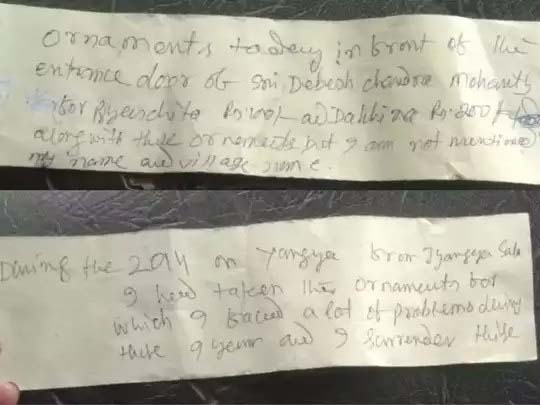 ornaments today in front of the
entrance door of Sri Debesh chandra Mohanty
for Prayaschita Rs.100/- and Dakhina Rs.200/-
along with these ornaments but I am not mentioned
my name and village name.
During the 2014 on Yangya from Jyangya Sala
I had taken the ornaments for
which I faced a lot of problems during
these 9 year and I surrender these